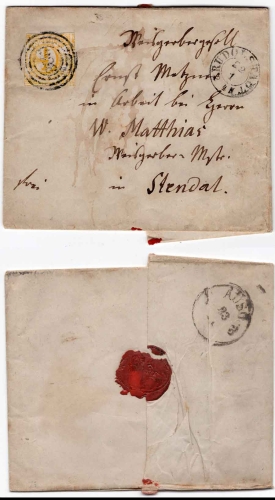 Weisgerbergesell
Ernst Metzner
in Arbeit bei Herrn
W. Matthias
Weisgerber Mstr.
frei
in Stendal.